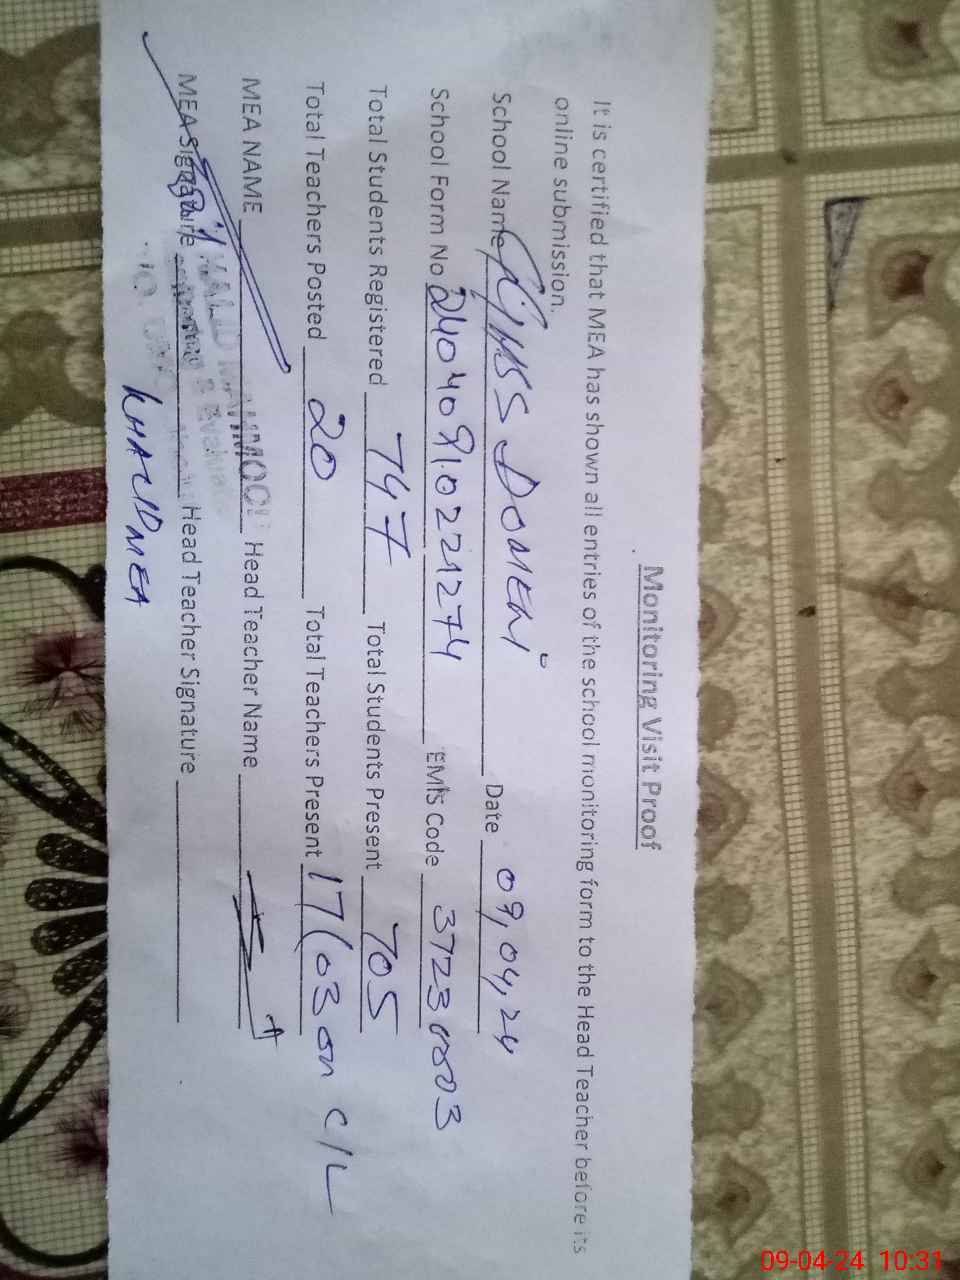 Monitoring Visit Proof
It is certified that MEA has shown all entries of the school monitoring form to the Head Teacher before its
online submission.
School Name GHSS DOMELI Date 09,04,24
School Form No 24040910221274 EMIS Code 37230003
Total Students Registered 747 Total Students Present 705
Total Teachers Posted 20 Total Teachers Present 17(03 on C/L
MEA NAME KHALID MAHMOOD Head Teacher Name
MEA Signature Head Teacher Signature
KHALID MEA
09-04-24 10:31